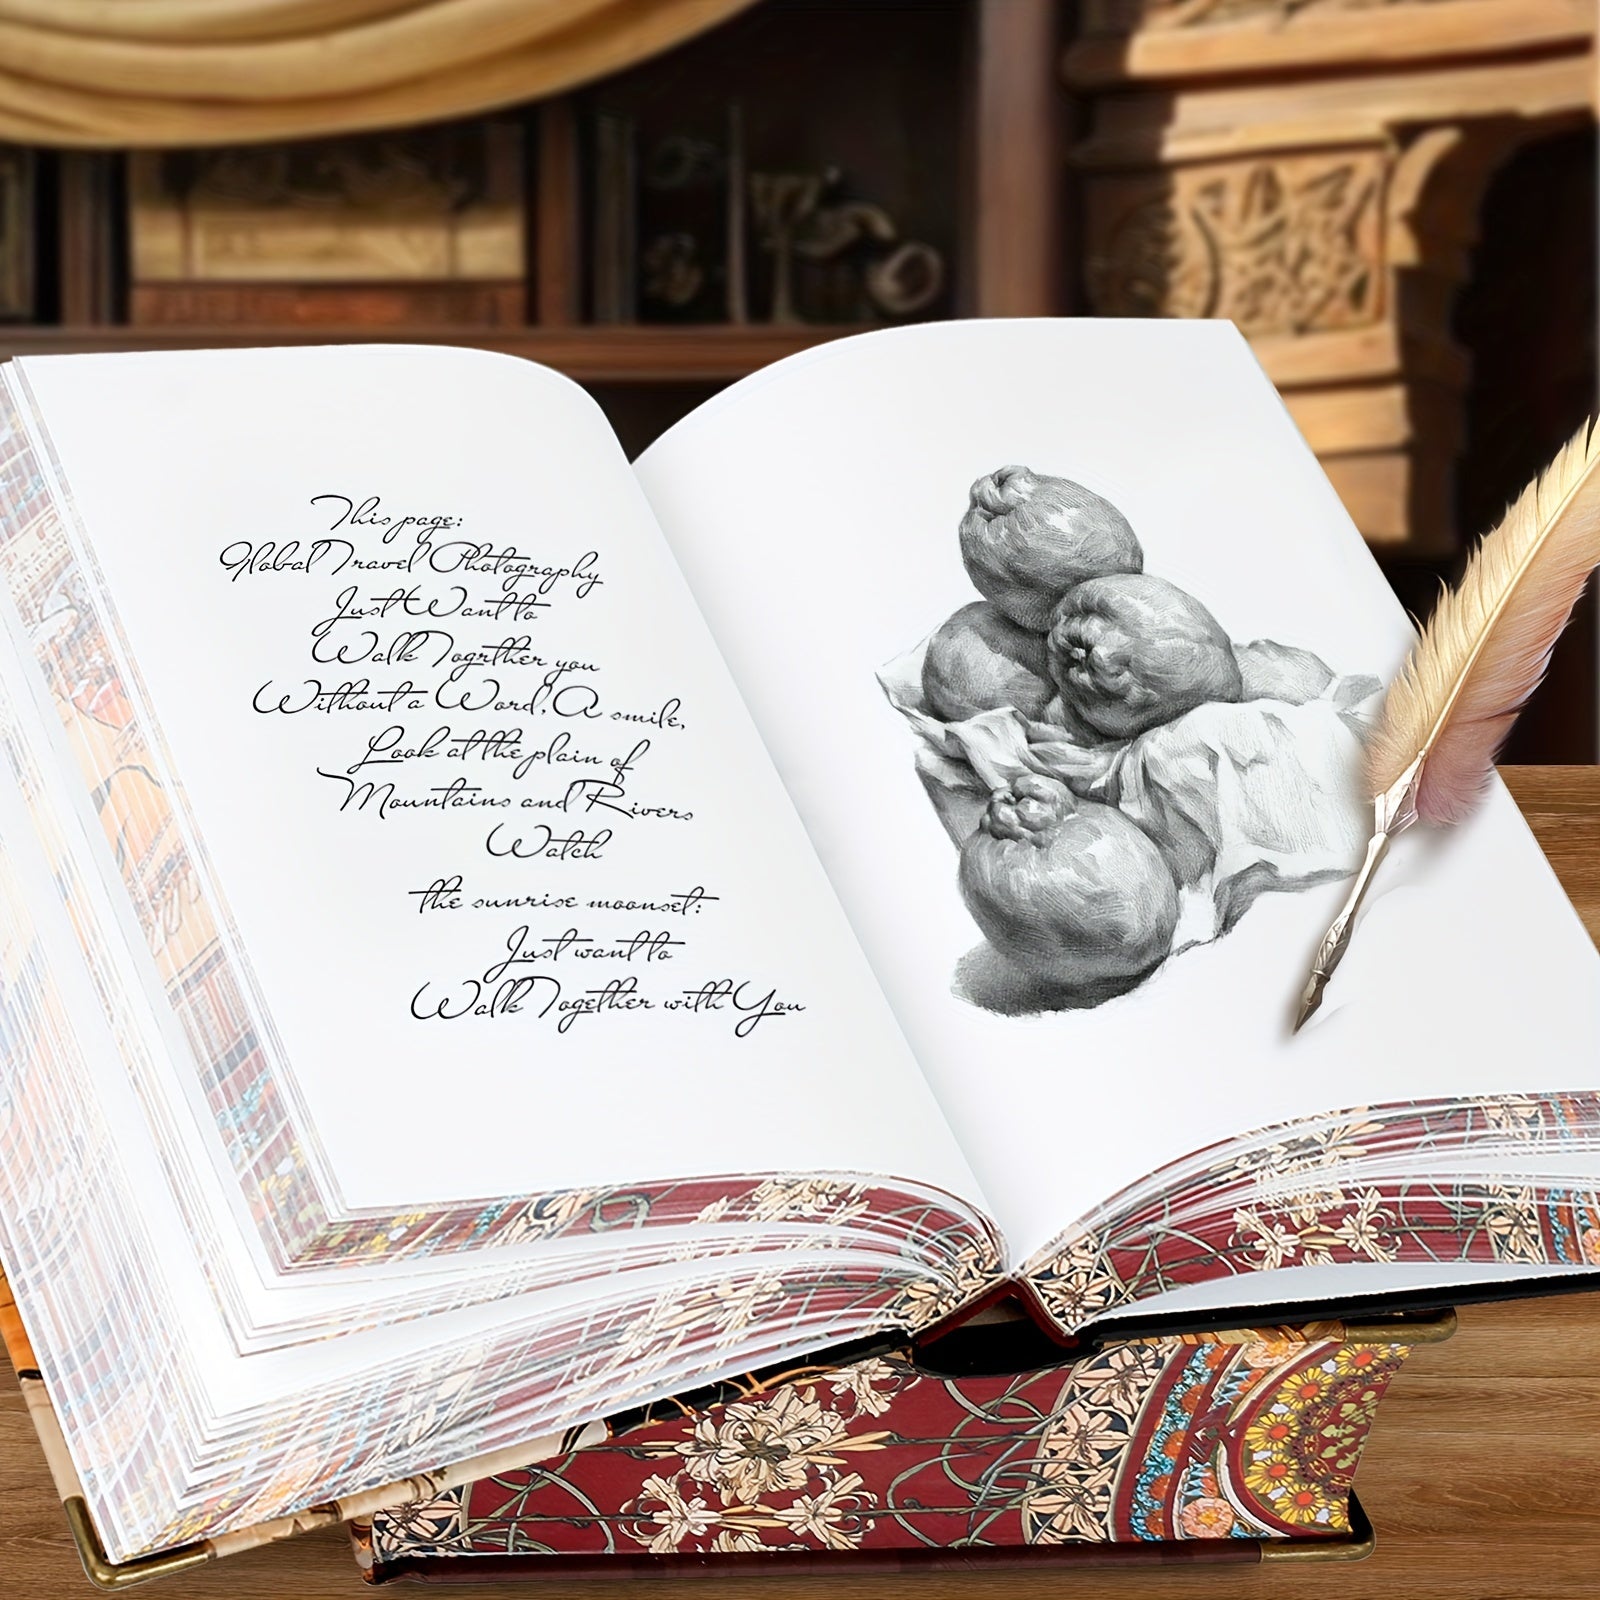 This page:
Global Travel Photography
Just Want to
Walk Togrther you
Without a Word, A smile,
Look at the plain of
Mountains and Rivers
Watch
the sunrise moonset:
Just want to
Walk Together with You